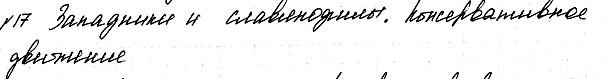 №17 Западники и славянофилы. Консервативное
движение